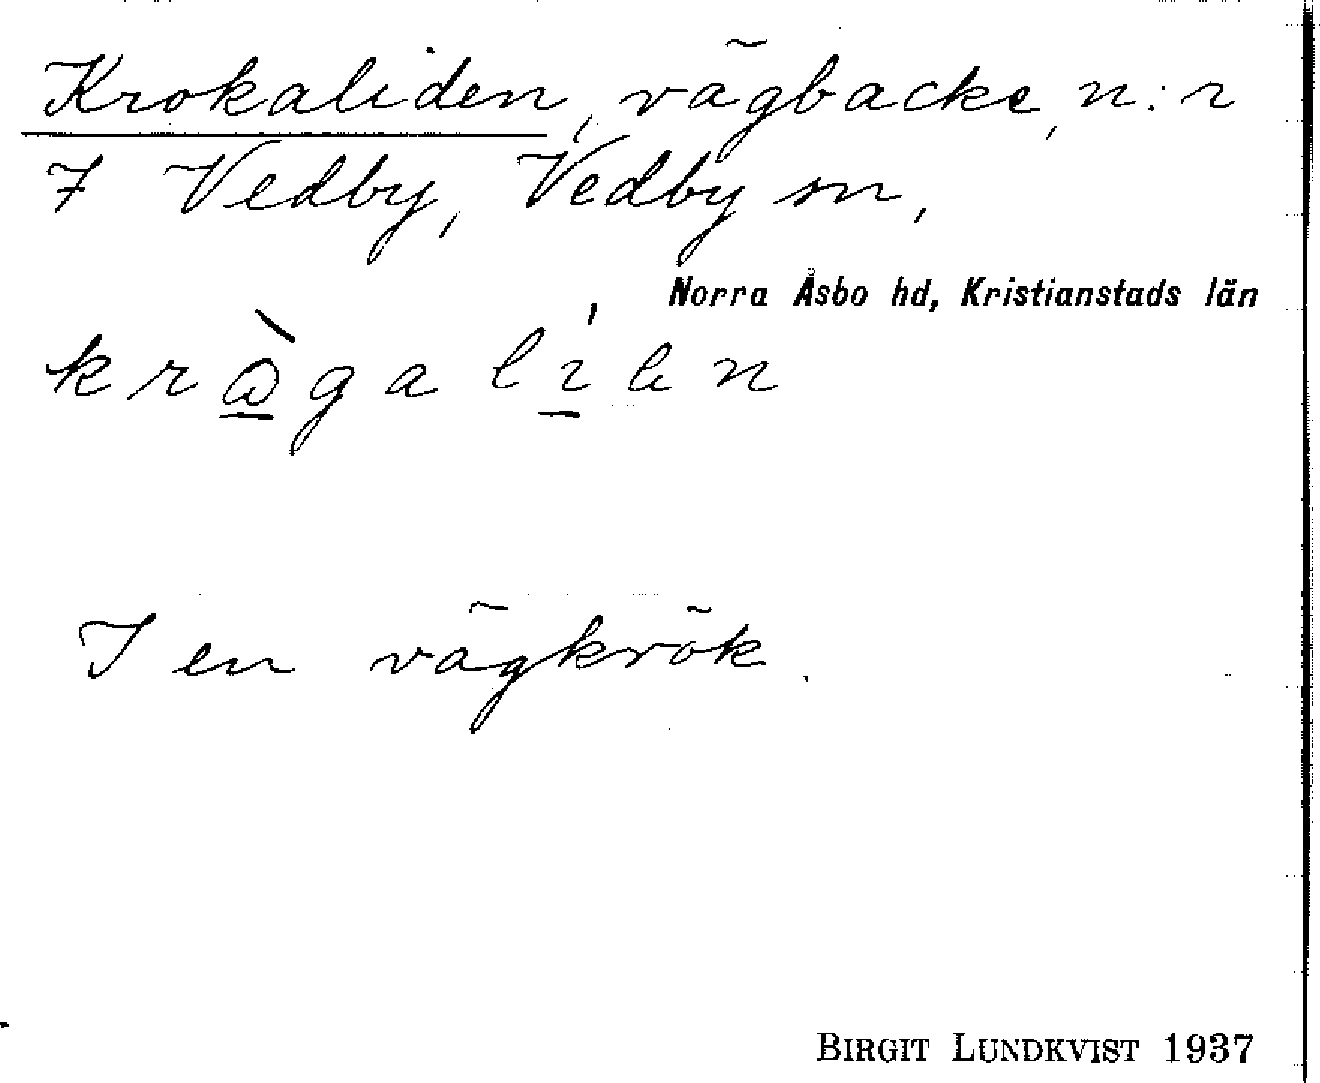 Krokaliden, vägbacke, n:r
7 Vedby, Vedby sn,
Norra Åsbo hd, Kristianstads län
I en vägkrök.
BIRGIT LUNDKVIST 1937